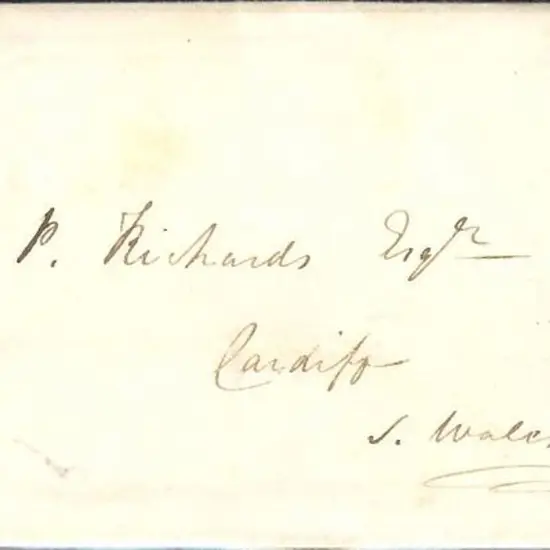 P. Richards Esqre
Cardiff
S. Wales